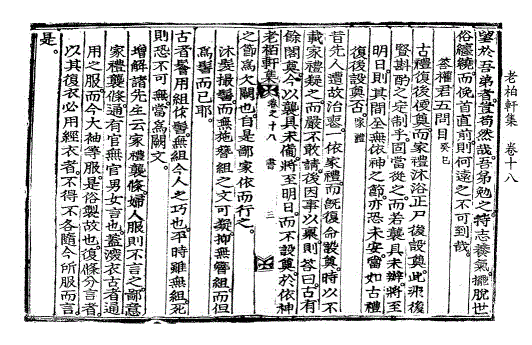 老柏軒集 卷十八
望於吾弟者豈苟然哉吾弟勉之特志養氣擺脫世
俗纏繞而俛首直前則何遠之不可到哉
答權君五問目 癸巳
古禮復後便奠而家禮沐浴正尸後設奠此兩後
賢斟酌之定制乎固當從之而若襲具未辦將至
明日則其間全無依神之節亦恐未安當如古禮
復後設奠否 家禮
昔先人遭故治喪 依家禮而旣復命設奠時以不
載家禮疑之而嚴不敢請後因事以稟則答曰古有
餘閣奠今以襲具未備將至明日而不設奠於依神
老柏軒集 卷之十八 書 三
之節爲大闕也自是鄙家依而行之
沐髮撮髻而無施簪組之文可疑抑無簪組而但
爲髻而已耶
古者髻用組係髻無組今人之巧也平時雖無組死
則恐不可無當爲闕文
增解諸先生云家禮襲條婦人服則不言之鄙意
家禮襲條通有官無官男女言也蓋深衣古者通
用之服而今大袖等服是俗製故也復條分言者
以其復衣必用經衣者不得不各隨今所服而言
是